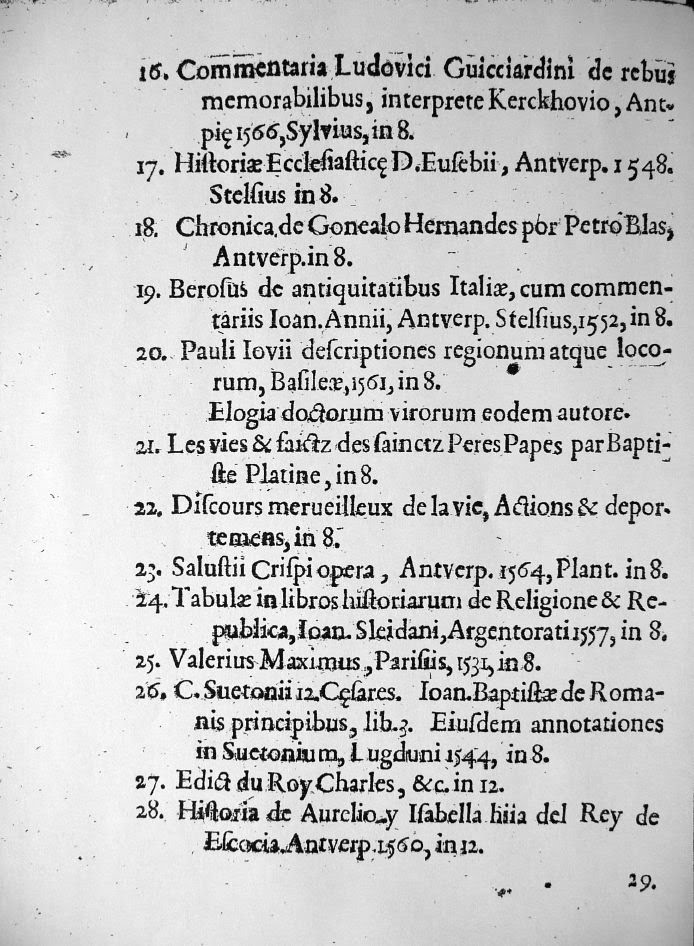 16. Commentaria Ludovici Guicciardini de rebus
memorabilibus, interprete Kerckhovio, Ant-
pię 1566, Sylvius, in 8.
17. Hiſtoriæ Eccleſiaſticę D. Euſebii, Antverp. 1548.
Stelſius in 8.
18. Chronica de Gonealo Hernandes pòr Petro Blas,
Antverp. in 8.
19. Beroſus de antiquitatibus Italiæ, cum commen-
tariis Ioan. Annii, Antverp. Stelſius, 1552, in 8.
20. Pauli Iovii deſcriptiones regionum atque loco-
rum, Baſileæ, 1561, in 8.
Elogia doctorum virorum eodem autore.
21. Les vies & faictz des ſainctz Peres Papes par Bapti-
ſte Platine, in 8.
22. Diſcours merueilleux de la vie, Actions & depor-
temens, in 8.
23. Saluſtii Criſpi opera, Antverp. 1564, Plant. in 8.
24. Tabulæ in libros hiſtoriarum de Religione & Re-
publica, Ioan. Sleidani, Argentorati 1557, in 8.
25. Valerius Maximus, Pariſiis, 1531, in 8.
26. C. Suetonii 12. Cęſares. Ioan. Baptiſtæ de Roma-
nis principibus, lib. 3. Eiuſdem annotationes
in Suetonium, Lugduni 1544, in 8.
27. Edict du Roy Charles, &c. in 12.
28. Hiſtoria de Aurelio y Iſabella hiia del Rey de
Eſcocia. Antverp. 1560, in 12.
29.